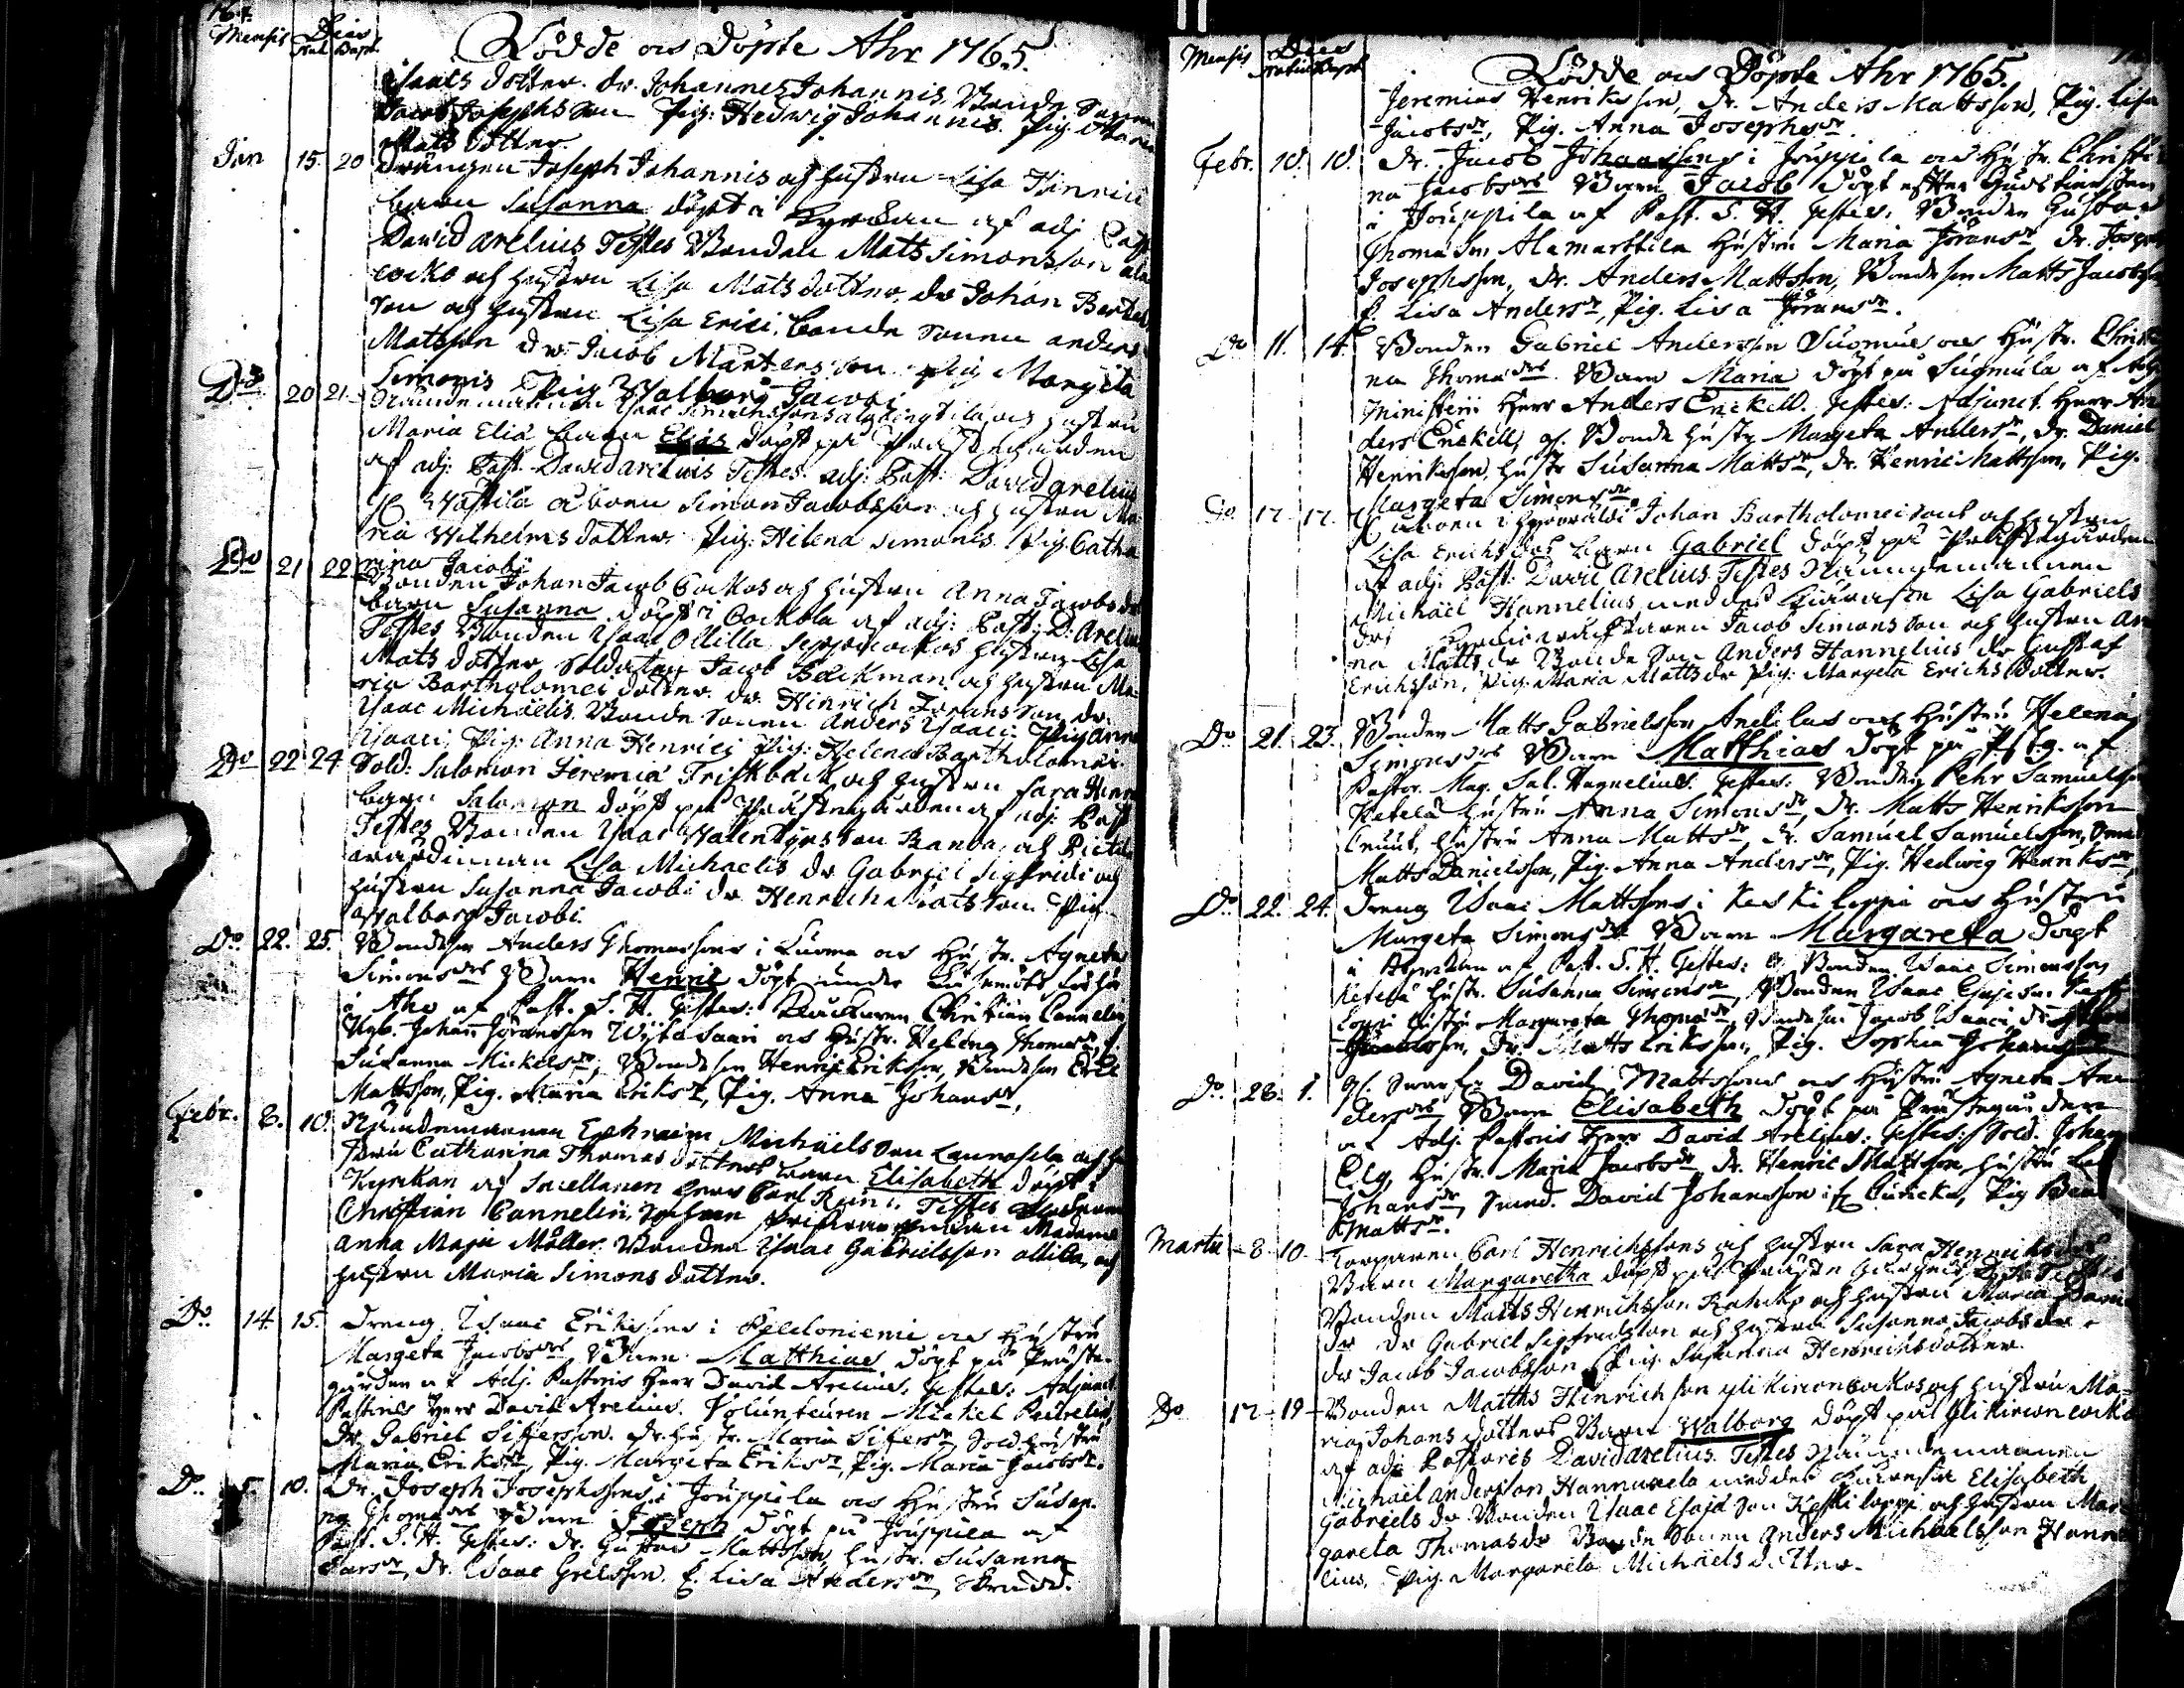 Mensis Dies
Nat. Bapt.
Födde och Döpte Åhr 1765.
Isaacs dotter. dr. Johannes Johannis, Bonde Sonen
Jacob Josephsson Pig: Hedwig Johannis. Pig. Maria
Mats dotter.
Jan 15 20 drängen Joseph Johannis och hustru Lisa Hinrici
barn Susanna döpt i Kyrckan af adj. Past.
David Arelius Testes Bonden Mats Simonsson
cocko och hustru Lisa Mats dotter, dr Johan Bertels
son och hustru Lisa Erici, bonde Sonen anders
Matsson dr. Jacob Mårtensson Pig Margeta
Simonis Pig Walborg Jacobi
Do 20 21 Nämndemannen Isaac Simonssons och hustru
Maria Eliæ barn Elias döpt på Prästegården
af adj. Past. David Arelius Testes. adj. Past. David Arelius
åboen Simon Jacobsson och hustru Ma
ria Wilhelms dotter. Pig. Helena Simonis. Pig. Catha
rina Jacobi
Do 21 22 Bonden Johan Jacob Cockos och hustru Anna Jacobs dr
barn Susanna döpt i Cockola af adj. Past: D: Arelius
Testes Bonden Isaac Ollilla, hustru Lisa
Mats dotter, Soldaten Jacob Beckman och hustru Ma-
ria Bartholomei dotter. dr. Hinrich Joransson, dr.
Isaac Michaelis. Bonde Sonen Anders Isaaci. Pig Anna
Isaaci, Pig: Anna Henrici Pig: Helena Bartholomæi.
Do 22 24 Sold: Salomon Jeremiæ Friskbäck och hustru Sara Henr
barn Salomon döpt på Prästegården af adj. Past
Testes Bonden Isaac Valentinsson Kanta, och
wärdinnan Lisa Michaelis dr Gabriel Sigfridi och
hustru Susanna Jacobi dr Henrich Matsson Pig
Walborg Jacobi
Do 22. 25. Bondeson Anders Thomassons i Luoma och Hustr. Agneta
Simonsdrs Barn Henric döpt under
i Aho af Past. S. H. Testes: Klockaren Christian Cannelin
Johan Joransson Wijtasaari och Hustr. Helena Thomædr
Susanna Mickelsdr, Bondeson Henric Eriksson, Bondeson Eric
Mattsson, Pig. Maria Eriksdr, Pig. Anna Johansdr,
Febr. 8. 10. Nämdemannen Ephraim Michaelsson Lannosila och hu
stru Catharina Thomas dotters barn Elisabeth döpt i
Kyrckan af Sacellanen herr Carl Rein. Testes
Christian Cannelin, Madame
Anna Maja Möller. Bonden Isaac Gabrielsson ollila, och
hustru Maria Simons dotter.
Do. 14. 15. Dreng Isaac Erikssons i Peldoniemi och Hustru
Margeta Jacobsdrs Barn Matthias döpt på Präste-
gården af Adj. Pastoris Herr David Arelius. Testes: Adjunct.
Pastoris Herr David Arelius. Volunteuren Mickel
Dr. Gabriel Sifferson. Dr. hustr. Maria Sifersdr Sold. hustru
Maria Eriksdr, Pig. Margeta Eriksdr, Pig. Maria Jacobsdr.
Do. 5. 10. Dr. Joseph Josephssons i Jouppila och Hustru Susan-
na Thomædrs Barn Joseph döpt på Jouppila af
Past. S. H. Testes: Dr. Gustav Mattsson, hustr. Susanna
Larsdr, Dr. Isaac Grelsson. E. Lisa Andersdr,
Mensis Dies
Natus Bapt.
Födde och Döpte Åhr 1765.
Jeremias Henriksson, Dr. Anders Mattsson, Pig. Lisa
Jacobsdr, Pig. Anna Josephsdr.
Febr. 10. 10. Dr. Jacob Johanssons i Jouppila och Hustr. Christi
na Jacobsdrs Barn Jacob döpt efter Gudstiensten
i Jouppila af Past. S. H. Testes: Bonden Gustav
Thomæson Alamarttila Hustru Maria Joransdr, Dr. Joseph
Josephsson, Dr. Anders Mattsson, Bondeson Matts Jacobsson
E. Lisa Andersdr, Pig. Lisa Joransdr.
Do 11. 14. Bonden Gabriel Andersson Suomus och Hustr. Christi
na Thomædrs Barn Maria döpt på Sugmula af Adj.
ministerii Herr Anders Enckell. Testes: Adjunct. Herr An
ders Enckell, gl. Bonde hustr Margeta Andersdr, Dr. Daniel
Henriksson, hustr Susanna Mattsdr, Dr. Henric Mattsson, Pig.
Margeta Simonsdr.
Do 17. 17. åboen Johan Bartholomei sons och hustru
Lisa Erichs drs barn Gabriel döpt på Prästegården
af adj. Past: David Arelius. Testes Nämndemannen
Michael Hannelius med des Kiäresta Lisa Gabriels
dr, Jacob Simons son och hustru An
na Matts dr Bonde Son Anders Hannelius dr Gustaf
Erichsson, Pig. Maria Matts dr Pig: Margeta Erichs dotter.
Do. 21. 23. Bonden Matts Gabrielsson Andilas och Hustru Helena
Simonsdrs Barn Matthias döpt på Pstg. af
Pastor. Mag. Sal. Hagnelius. Testes: Bonden Pehr Samuelsson
Ketelä hustru Anna Simonsdr, Dr. Matts Henriksson
hustru Anna Mattsdr, Dr. Samuel Samuelsson,
Matts Danielsson, Pig. Anna Andersdr, Pig. Hedwig Henriksdr,
Do. 22. 24. Dreng Isaac Mattssons i Keskiloppi och Hustru
Margeta Simonsdrs Barn Margareta döpt
i Kyrckan af Past. S. H. Testes: Bonden Isaac Simonsson
Ketelä hustr. Susanna Simonsdr, Bonden Isaac Esaieson Keski
loppi hustru Margareta Thomædr, Bondeson Jacob Isaaci
Dr. Matts Eriksson, Pig. Sophia Johansdr
Do. 28. 1. David Mattssons och Hustru Agneta An
dersdrs Barn Elisabeth döpt på Prästegården
af Adj. Pastoris Herr David Arelius: Testes: Sold. Johan
Elg, Hustr. Maria Jacobsdr, Dr. Henric Mattsson hustru
Johansdr, David Johansson Pig
Mattsdr.
Martii 8 10 Torparen Carl Henrichssons och hustru Sara Henrichsdrs
Barn Margaretha döpt på Prästegården Testes
Bonden Matts Henrichsson och hustru Maria
dr dr Gabriel Sigfridsson och hustru Susanna Jacobs dr
dr Jacob Jacobsson Pig: Susanna Henrichsdotter.
Do 17 19 Bonden Matths Hinrichson ylikirioncockos och hustru Ma-
ria Johans dotters Barn Walborg döpt på Ylikirioncocko
af adj Pastoris David Arelius. Testes Nämndemannen
Michael andersson Hannuxela med des Kiäresta Elisabeth
Gabriels dr. Bonden Isaac Esaiæ Son Keskiloppi och hustru Mar-
gareta Thomas dr Bonde Sonen Anders Michaelsson Hanne
lius, Pig. Margareta Michaels dotter.